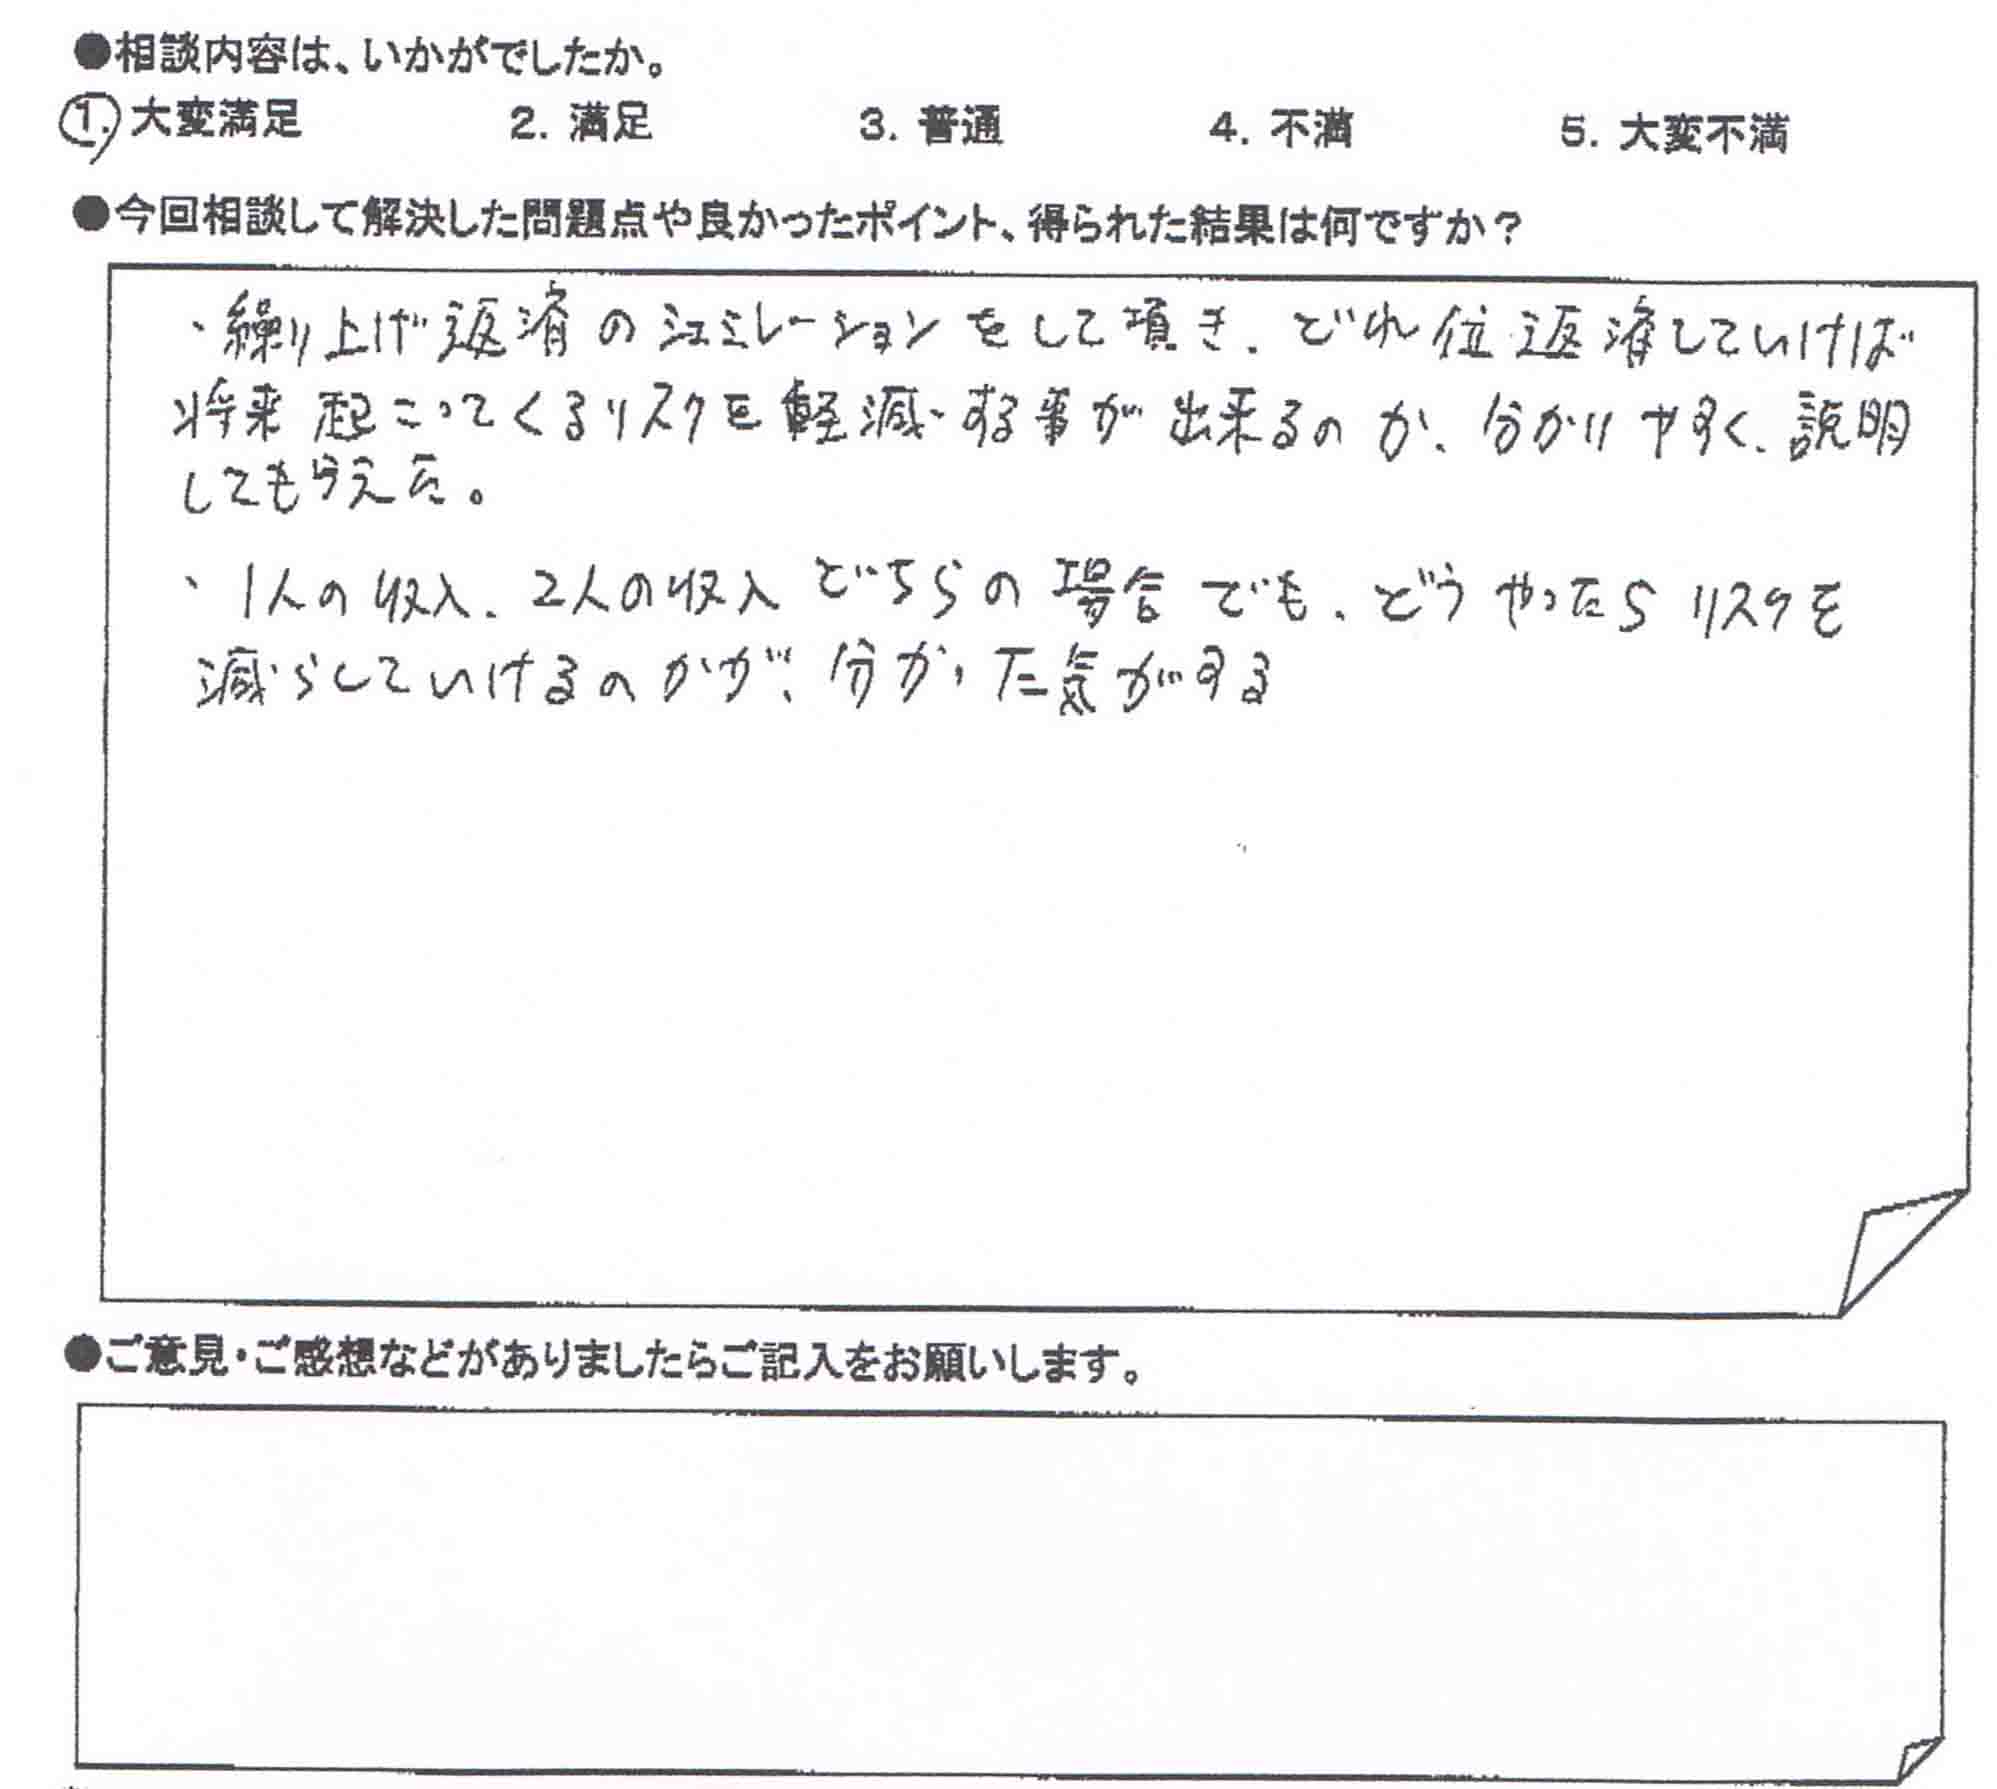 ●相談内容は、いかがでしたか。
1. 大変満足 2. 満足 3. 普通 4. 不満 5. 大変不満
●今回相談して解決した問題点や良かったポイント、得られた結果は何ですか？
・繰り上げ返済のシュミレーションをして頂き、どれ位返済していけば
将来起こってくるリスクを軽減する事が出来るのか、分かりやすく、説明
してもらえた。
・1人の収入、2人の収入どちらの場合でも、どうやったらリスクを
減らしていけるのかが、分かった気がする
●ご意見・ご感想などがありましたらご記入をお願いします。